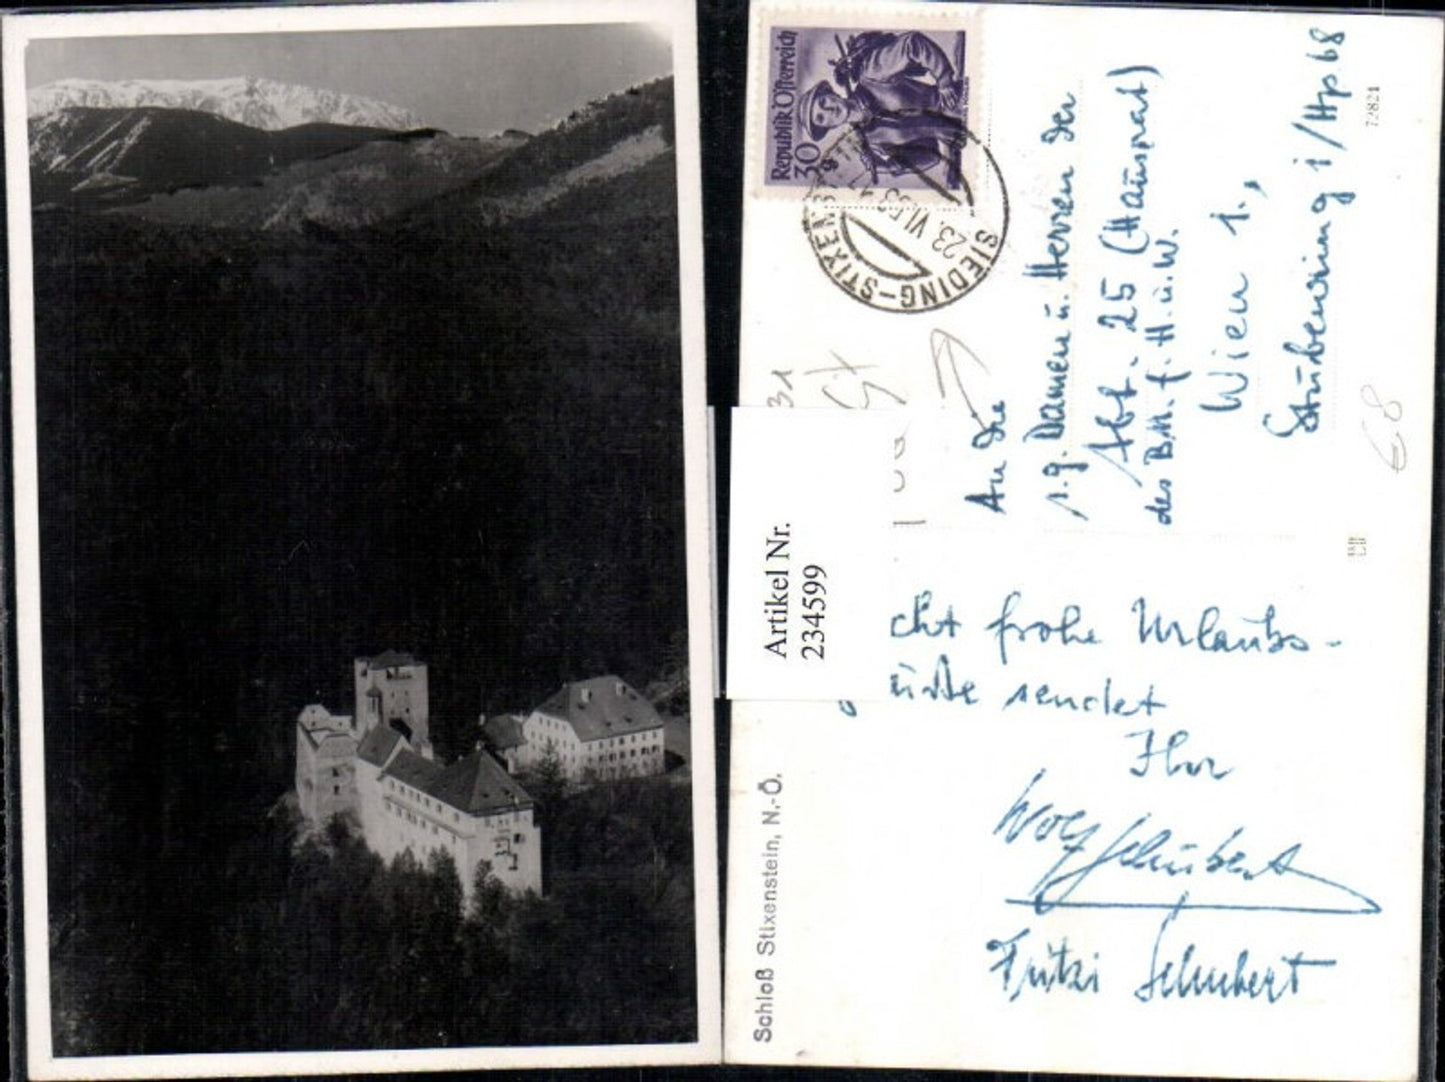 Republik Österreich
30
SIEDING-STIXENST
23. VI. 53
An die
s.g. Damen u. Herren der
Abt. 25 (Hausrat)
des B.M. f. H. u. W.
Wien 1.,
Stubenring 1/Hp 68
72821
€ 8
31
Artikel Nr.
234599
cht frohe Urlaubs-
üße sendet
Ihr
Wolf Schubert
Fritzi Schubert
Schloß Stixenstein, N.-Ö.